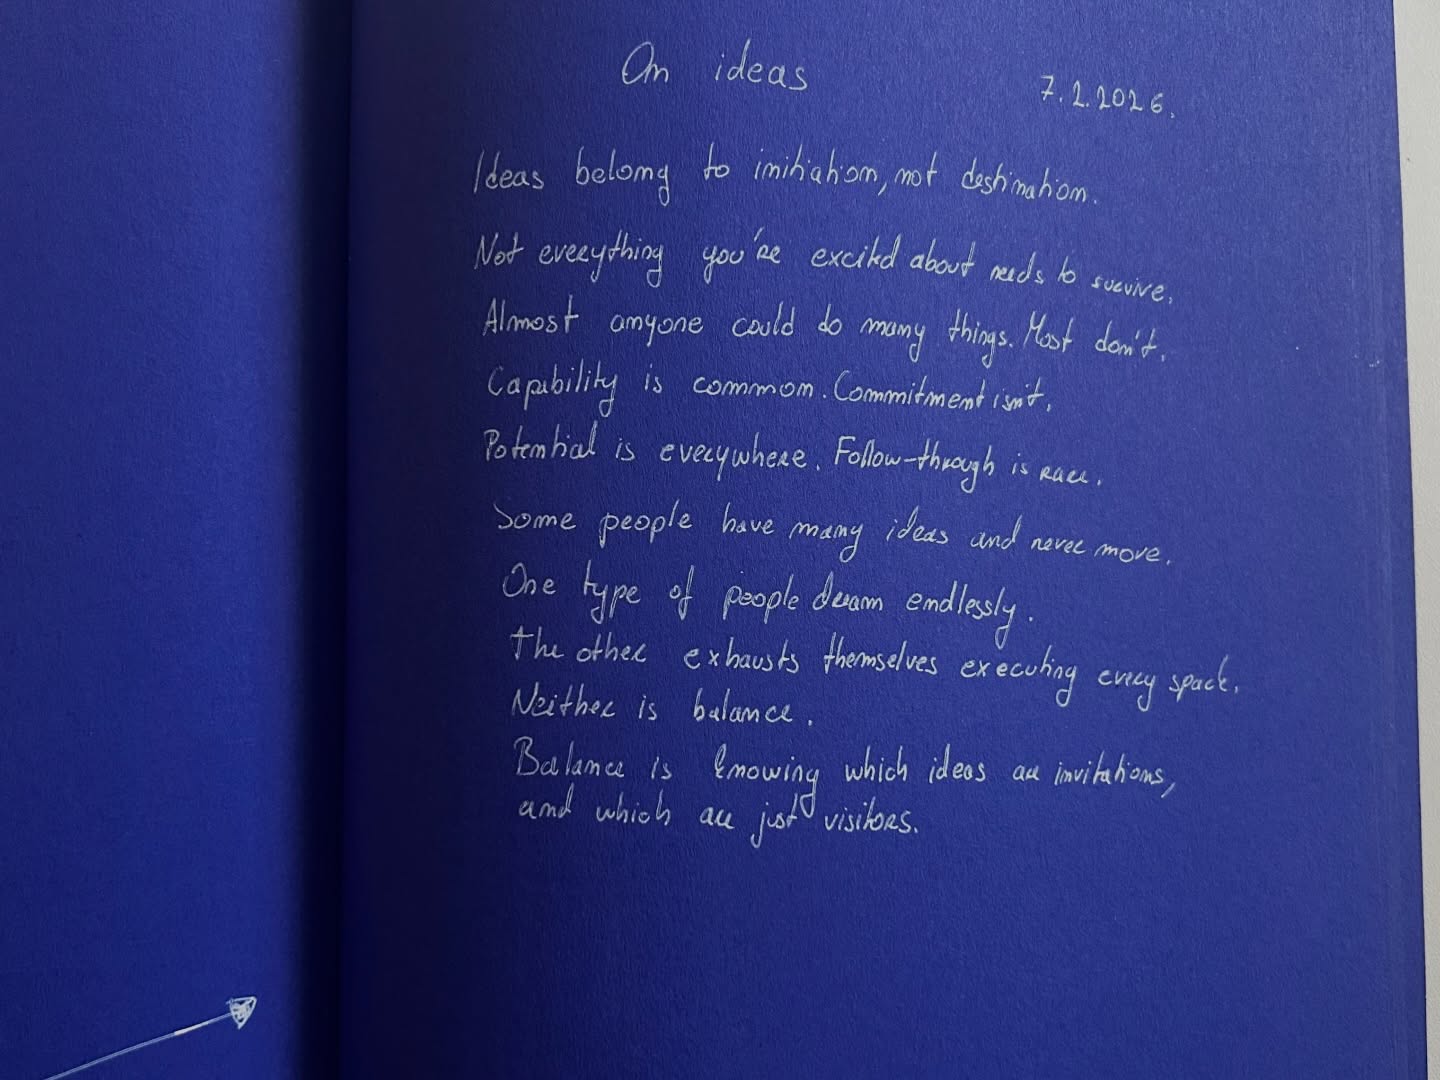 On ideas
7.2.2026.
Ideas belong to initiation, not destination.
Not everything you're excited about needs to survive.
Almost anyone could do many things. Most don't.
Capability is common. Commitment isn't.
Potential is everywhere. Follow-through is rare.
Some people have many ideas and never move.
One type of people dream endlessly.
The other exhausts themselves executing every spark.
Neither is balance.
Balance is knowing which ideas are invitations,
and which are just visitors.